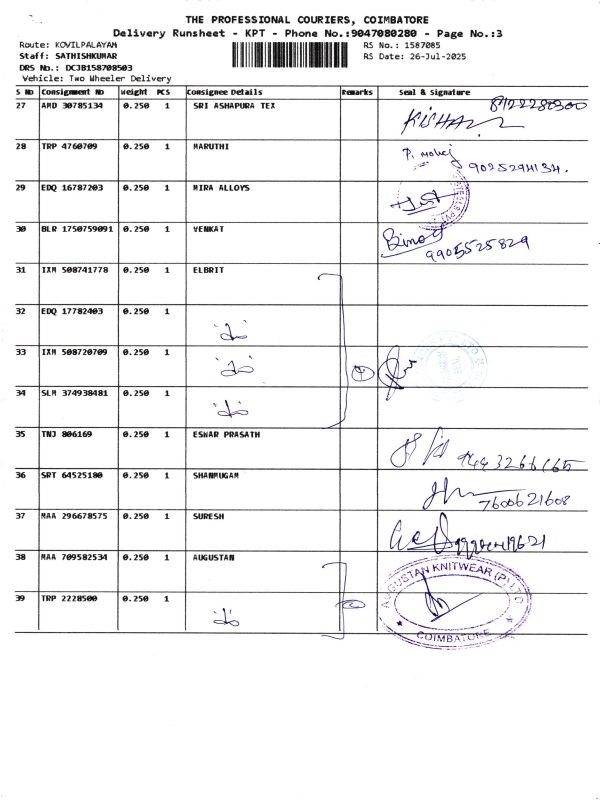 THE PROFESSIONAL COURIERS, COIMBATORE
Delivery Runsheet - KPT - Phone No.:9047080280 - Page No.:3
Route: KOVILPALAYAM RS No.: 1587085
Staff: SATHISHKUMAR RS Date: 26-Jul-2025
DRS No.: DCJB158708503
Vehicle: Two Wheeler Delivery
S No Consignment No Weight PCS Consignee Details Remarks Seal & Signature
27 AMD 30785134 0.250 1 SRI ASHAPURA TEX
28 TRP 4760709 0.250 1 MARUTHI 9025294134.
29 EDQ 16787203 0.250 1 MIRA ALLOYS
30 BLR 1750759091 0.250 1 VENKAT Binod 9905525829
31 IXM 508741778 0.250 1 ELBRIT
32 EDQ 17782403 0.250 1
33 IXM 508720709 0.250 1 4
34 SLM 374938481 0.250 1
35 TNJ 806169 0.250 1 ESWAR PRASATH
36 SRT 64525180 0.250 1 SHANMUGAM 7600621608
37 MAA 296678575 0.250 1 SURESH
38 MAA 709582534 0.250 1 AUGUSTAN AUGUSTAN KNITWEAR (P) LTD
39 TRP 2228500 0.250 1 2 COIMBATORE